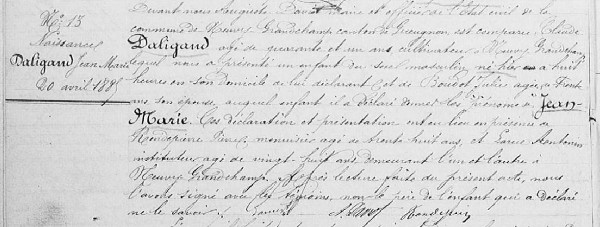 N° 15
Naissance
Daligand Jean Marie
20 avril 188
Devant nous Auguste maire et officier de l'Etat civil de la
commune de Neuvy Grandchamp canton de Gueugnon, est comparu Claude
Daligand agé de quarante et un ans cultivateur Neuvy Grandchamp
lequel nous a présenté un enfant du sexe masculin né hier a huit
heures en son domicile de lui déclarant et de Boudot Julie agée de trente
ans son épouse, auquel enfant il a déclaré donner les prénoms de Jean
Marie. Ces déclaration et présentation ont eu lieu en présence de
Rondepierre Pierre, menuisier agé de trente huit ans, et Antonin
instituteur agé de vingt-huit ans demeurant l'un et l'autre à
Neuvy Grandchamp. Après lecture faite du présent acte, nous
l'avons signé avec les témoins, non le père de l'enfant qui a déclaré
ne le savoir.